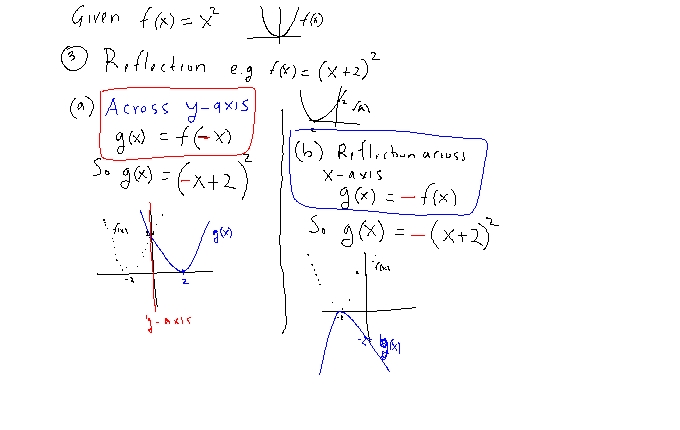 Given f(x) = x²
f(x)
③ Reflection e.g f(x) = (x+2)²
2 f(x)
-2
(a) Across y-axis
g(x) = f(-x)
So g(x) = (-x+2)²
f(x) 2 g(x)
-2 2
y-axis
(b) Reflection across
x-axis
g(x) = -f(x)
So g(x) = -(x+2)²
f(x)
-2
-2 g(x)